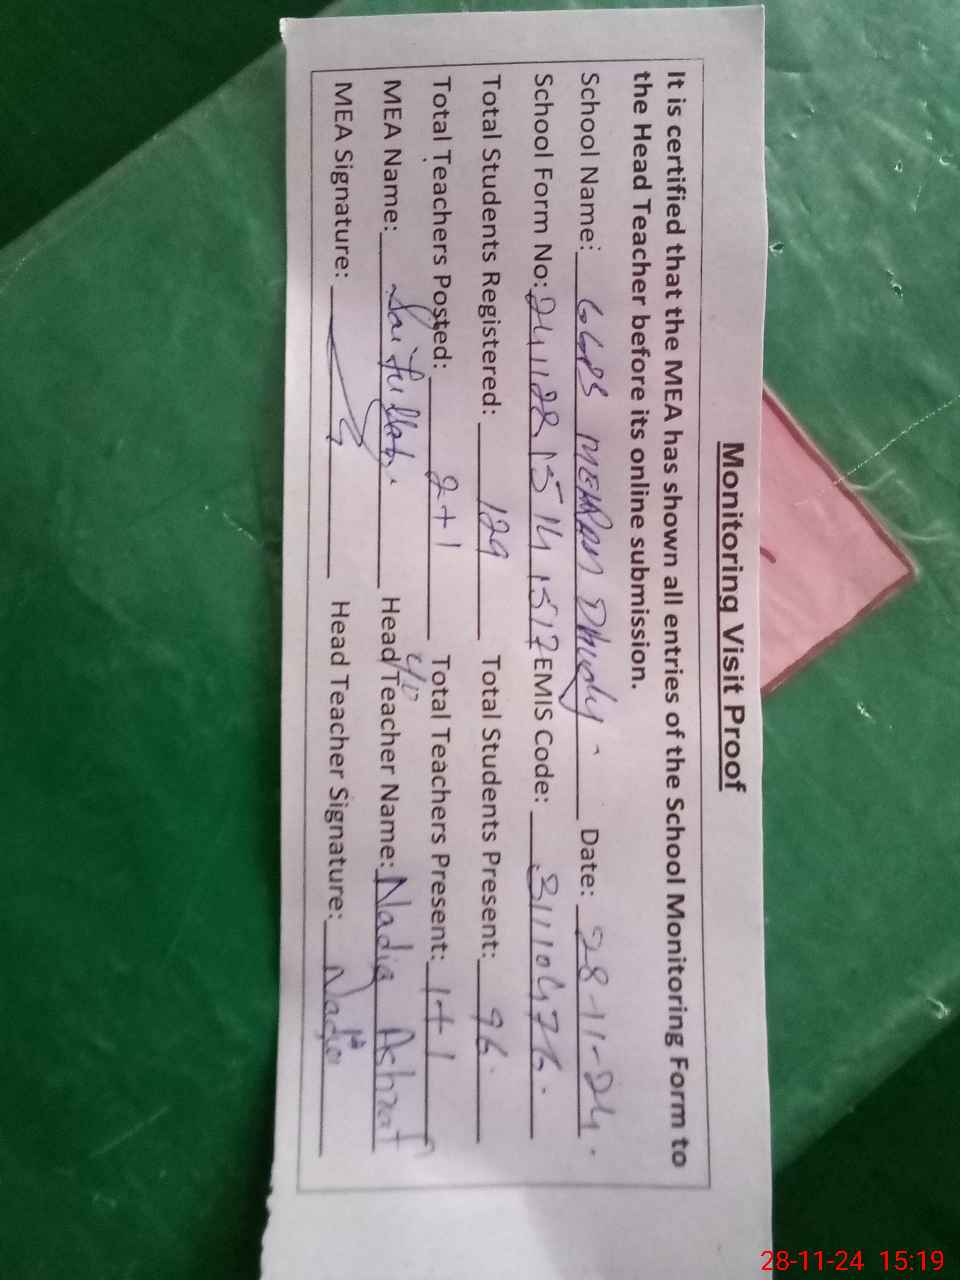 Monitoring Visit Proof
It is certified that the MEA has shown all entries of the School Monitoring Form to
the Head Teacher before its online submission.
School Name: GGPS MEHRAN Date: 28-11-24.
School Form No: 24112815141517 EMIS Code: 31110476.
Total Students Registered: 129 Total Students Present: 96
Total Teachers Posted: 2+1 Total Teachers Present: 1+1
MEA Name: Saifullah. Head Teacher Name: Nadia Ashraf
MEA Signature: Head Teacher Signature: Nadia
28-11-24 15:19